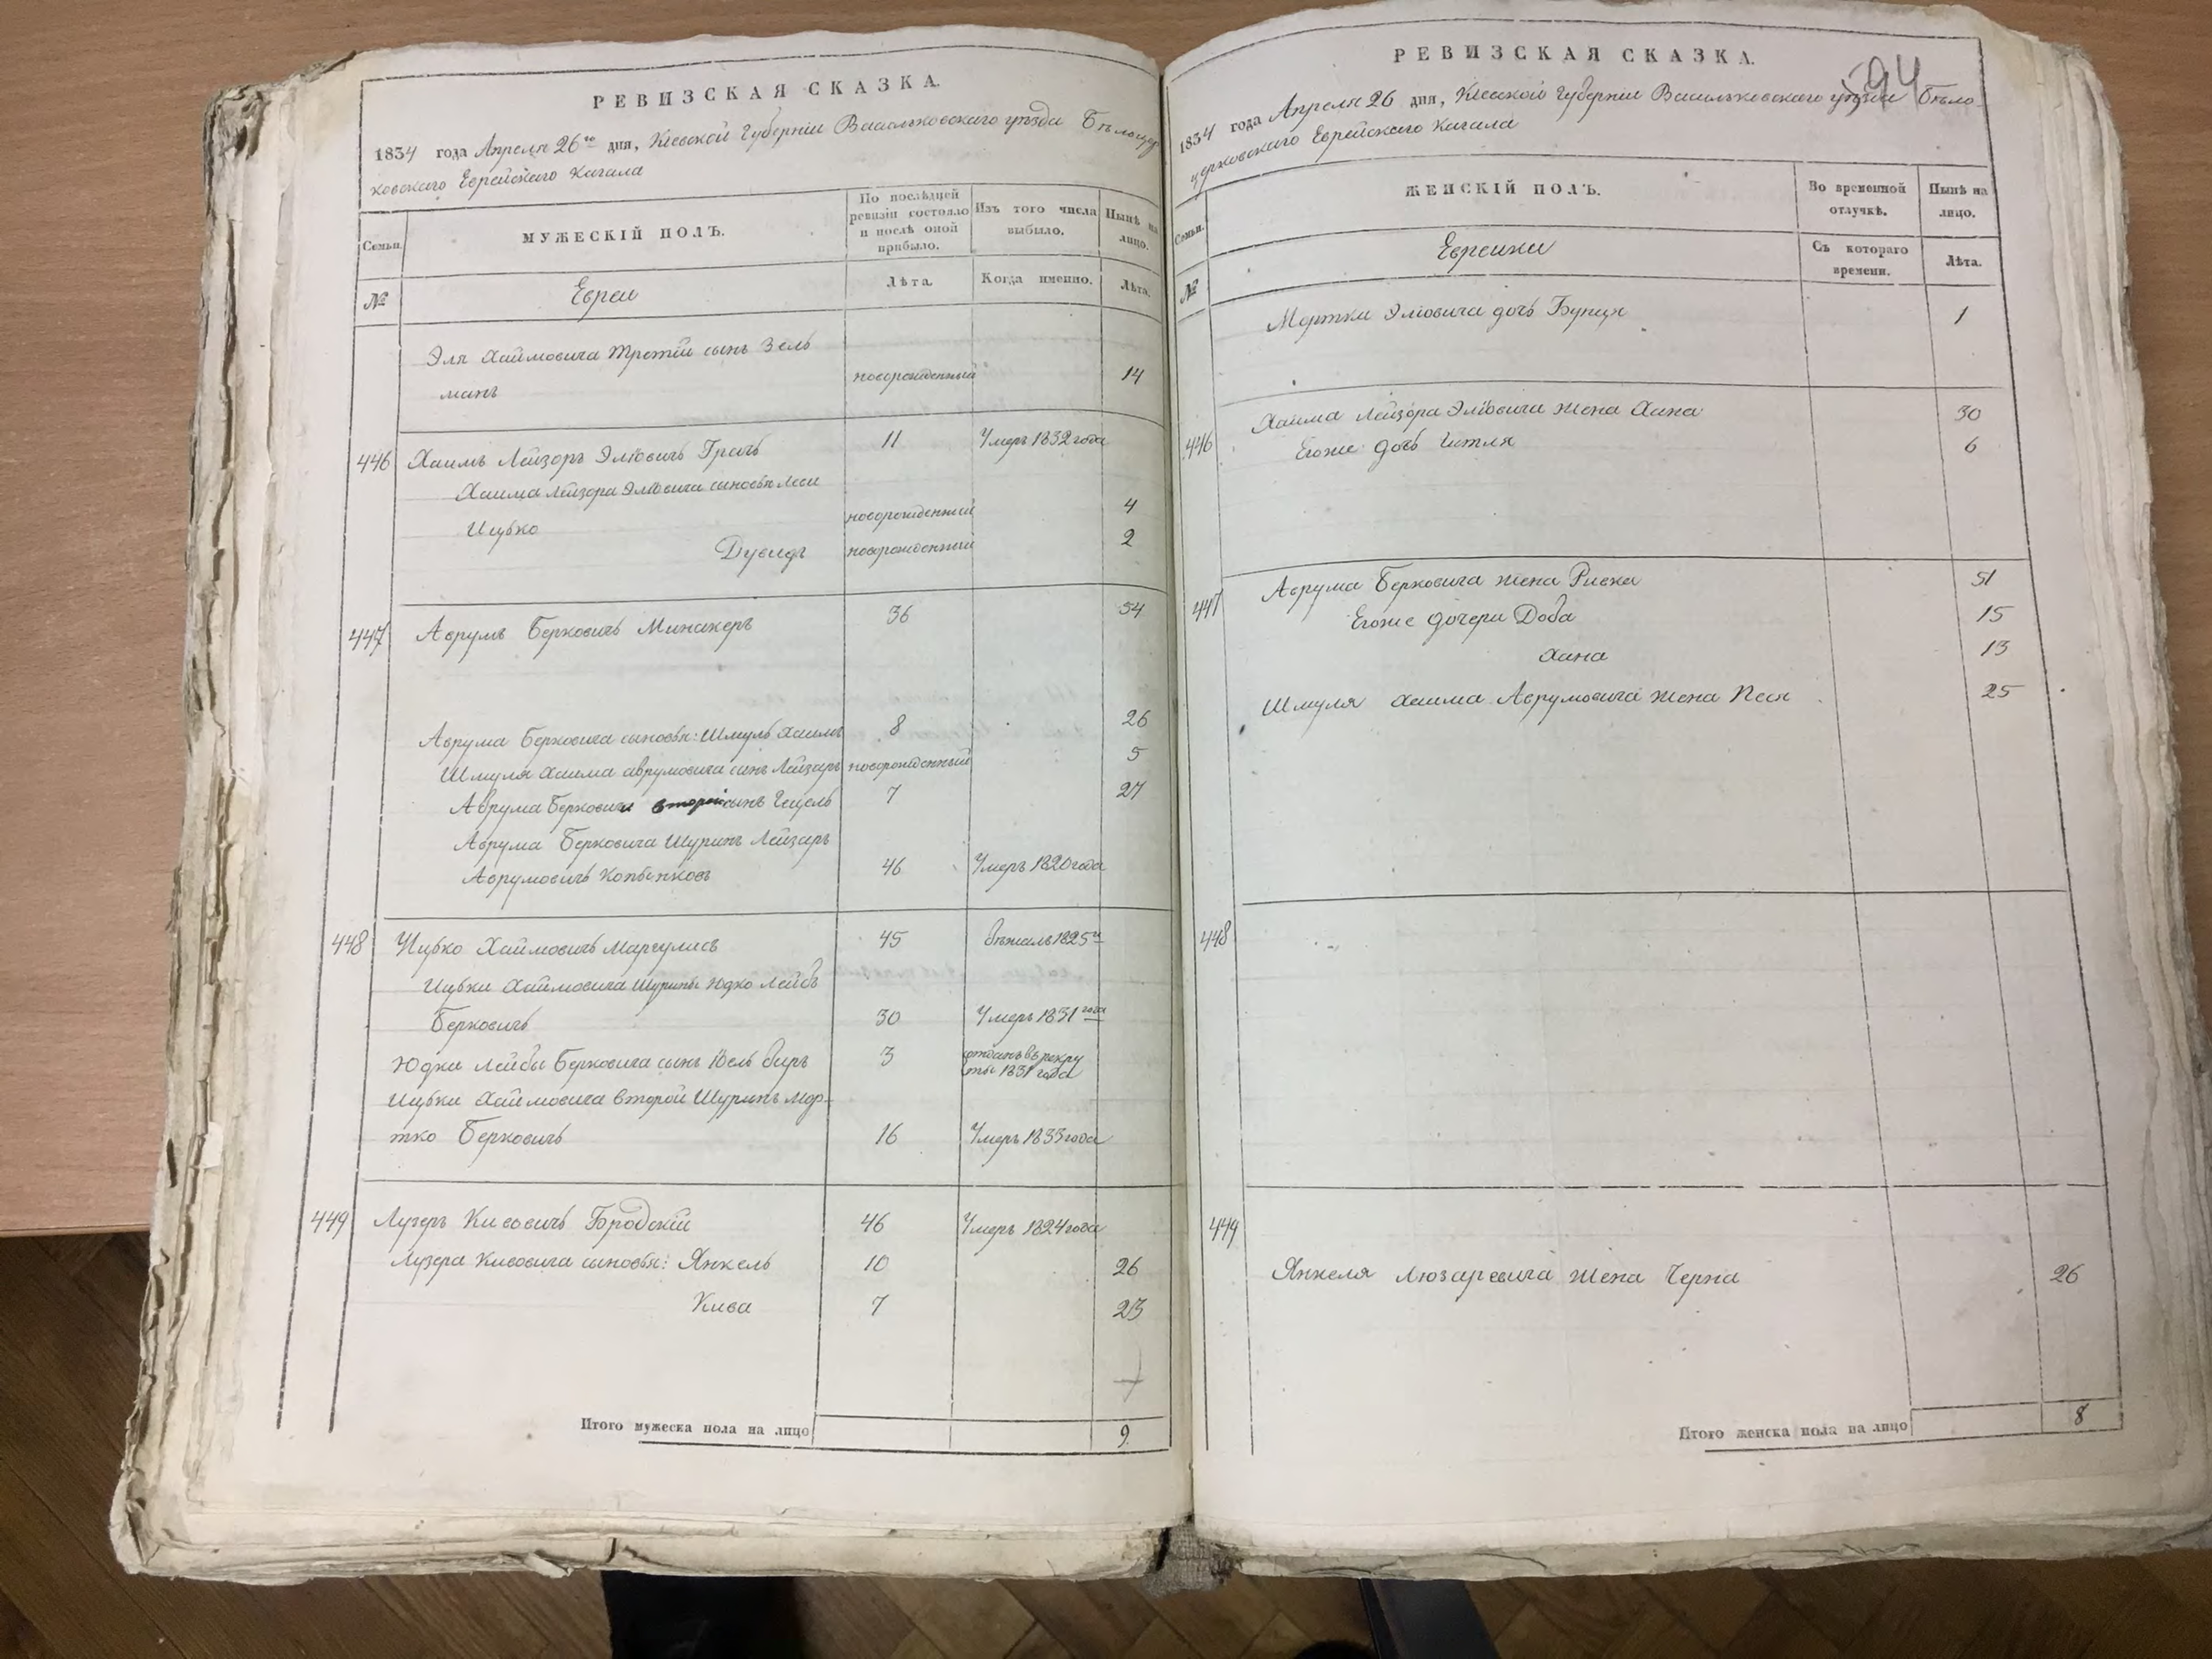 РЕВИЗСКАЯ СКАЗКА.
1834 года Апреля 26го дня, Кіевской Губерніи Васильковскаго уѣзда Бѣлоцер
ковскаго Еврейскаго Кагала
Семьи. МУЖЕСКІЙ ПОЛЪ. По послѣдней ревизіи состояло и послѣ оной прибыло. Изъ того числа выбыло. Нынѣ на лицо.
№ Евреи Лѣта. Когда именно. Лѣта.
Эля Хаймовича третій сынъ Зель
манъ новорожденный 14
446 Хаимъ Лейзоръ Эліовичъ 11 Умеръ 1832 года
Хаима Лейзора Эліовича сыновья
Ицько новорожденный 4
Дувидъ новорожденный 2
447 Аврумъ Берковичъ Минакеръ 36 54
Аврума Берковича сыновья: Шмуль Хаимъ 8 26
Шмуля Хаима аврумовича сынъ Лейзаръ новорожденный 5
Аврума Берковича второй сынъ Гецель 7 27
Аврума Берковича Шуринъ Лейзаръ
Аврумовичъ 46 Умеръ 1820 года
448 Ицько Хаймовичъ Маргулисъ 45 бѣжалъ 1825
Ицьки Хаймовича Шуринъ Юдко Лейбъ
Берковичъ 30 Умеръ 1831 года
Юдки Лейбы Берковича сынъ Іосль беръ 3 отданъ въ рекру
ты 1831 года
Ицьки Хаймовича второй Шуринъ Мор-
тко Берковичъ 16 Умеръ 1833 года
449 Лузеръ Кивовичъ Бродскій 46 Умеръ 1824 года
Лузера Кивовича сыновья: Янкель 10 26
Кива 7 23
Итого мужеска пола на лицо 9.
594
РЕВИЗСКАЯ СКАЗКА.
1834 года Апреля 26 дня, Кіевской Губерніи Васильковскаго уѣзда Бѣло-
церковскаго Еврейскаго Кагала
Семьи. ЖЕНСКІЙ ПОЛЪ. Во временной отлучкѣ. Нынѣ на лицо.
№ Еврейки Съ котораго времени. Лѣта.
Мортки Эліовича дочь 1
446 Хаима Лейзора Эліовича жена Хана 30
Егоже дочь Гитля 6
447 Аврума Берковича жена Ривка 51
Егоже дочери Доба 15
Хана 13
Шмуля Хаима Аврумовича жена Песя 25
448
449
Янкеля Люзаревича жена Черна 26
Итого женска пола на лицо 8